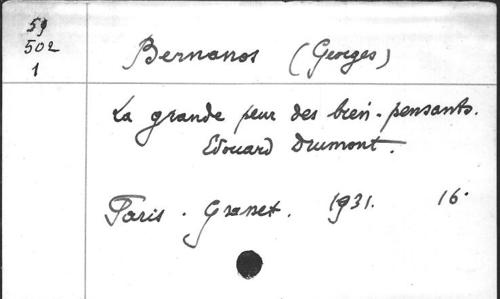 59
502
1
Bernanos (Georges)
La grande peur des bien-pensants.
Edouard Drumont.
Paris. Grasset. 1931. 16°